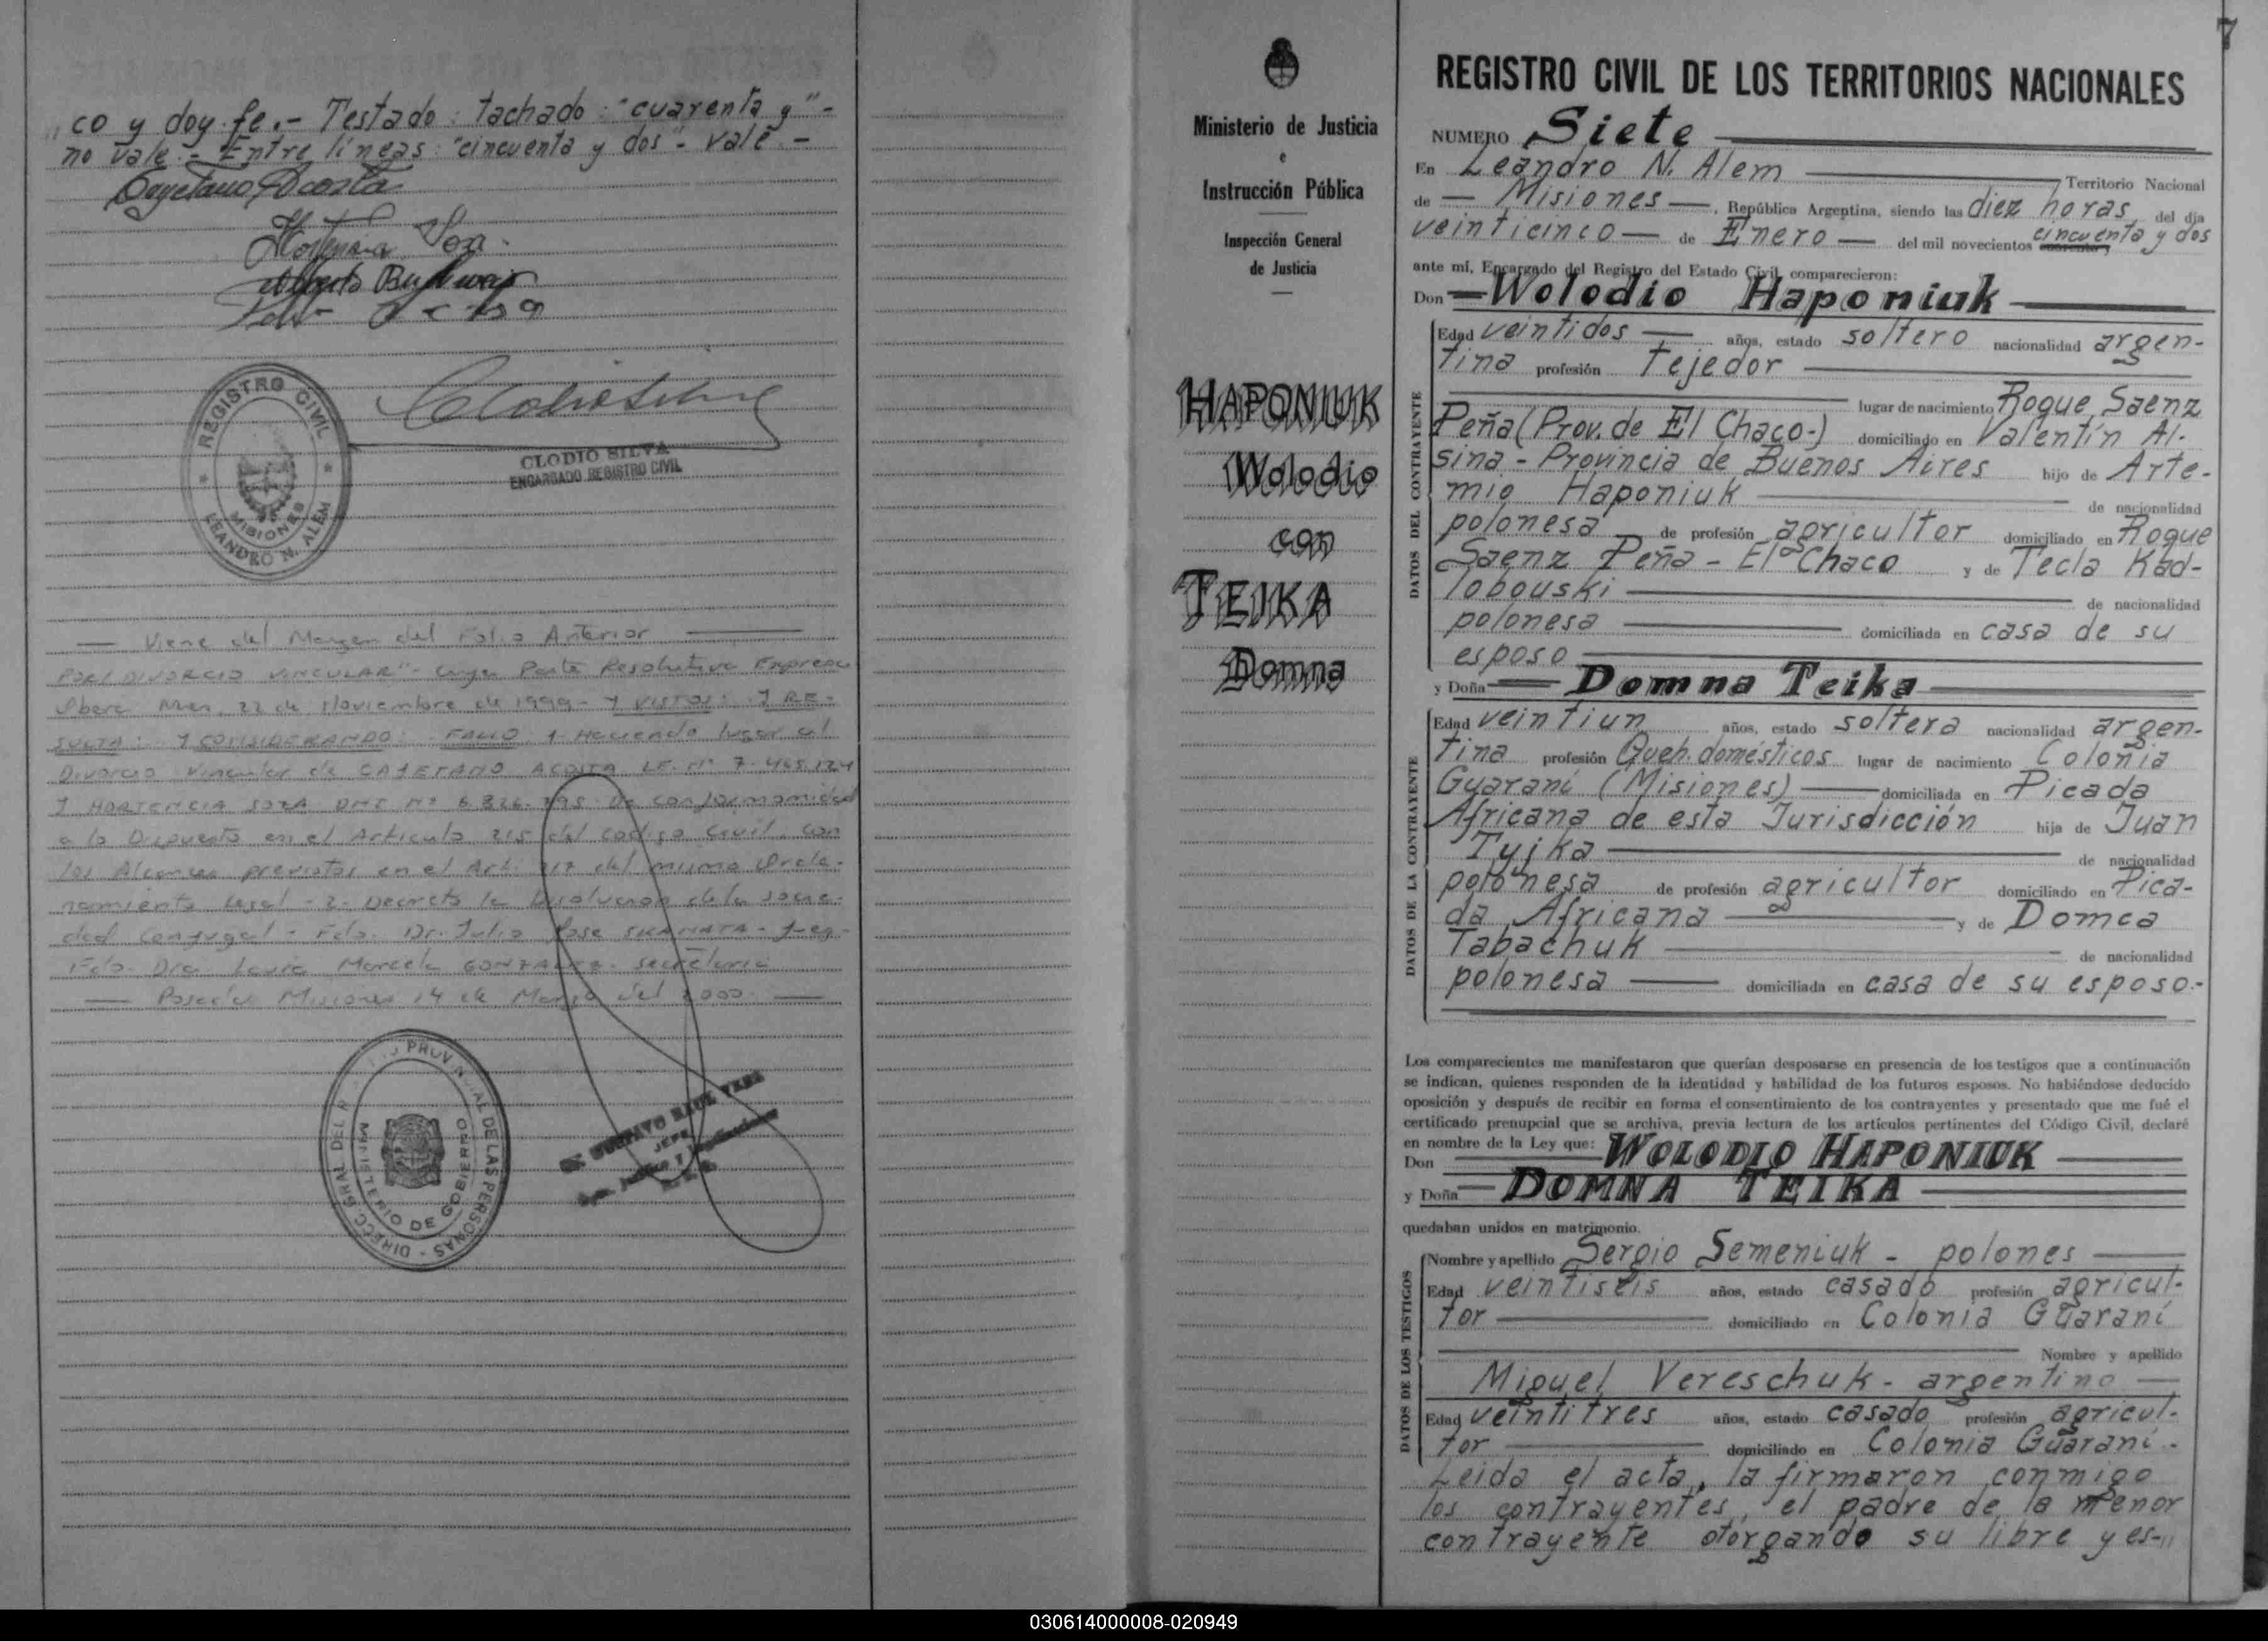 co y doy fe.- Testado: tachado: "cuarenta y"-
no vale.- Entre líneas: "cincuenta y dos"- vale.-
Cayetano Acosta
Hortencia Soza.
Alberto
REGISTRO CIVIL
MISIONES
LEANDRO N. ALEM
CLODIO SILVA
ENCARGADO REGISTRO CIVIL
— Viene del Margen del Folio Anterior —
POR/ DIVORCIO VINCULAR"- cuya Parte Resolutiva Expresa:
Obera Mnes. 22 de Noviembre de 1999- Y VISTOS: Y RE-
SULTA: Y CONSIDERANDO: FALLO 1- Haciendo lugar al
Divorcio Vincular de CAYETANO ACOSTA LE. Nº
Y HORTENCIA SOZA DNI Nº de conformomidad
a lo Dispuesto en el Articulo 215 del codigo Civil, con
los Alcances previstos en el Art. 217 del mismo Orde-
namiento Legal - 2- Decreto la Disolucion de la socie-
dad Conyugal - Fdo. Dr. Julio Jose - Juez-
Fdo. Dra. Marcela GONZALEZ- secretaria
— Posadas Misiones 14 de Marzo del 2000. —
DIRECC. GRAL. DEL PROVINCIAL DE LAS PERSONAS -
MINISTERIO DE GOBIERNO
JEFE
Ministerio de Justicia
e
Instrucción Pública
Inspección General
de Justicia
HAPONIUK
Wolodio
con
TEIKA
Domna
7
REGISTRO CIVIL DE LOS TERRITORIOS NACIONALES
NUMERO Siete
En Leandro N. Alem Territorio Nacional
de — Misiones —, República Argentina, siendo las diez horas del día
veinticinco — de Enero — del mil novecientos cincuenta y dos
ante mí, Encargado del Registro del Estado Civil, comparecieron:
Don — Wolodio Haponiuk
Edad veintidos — años, estado soltero nacionalidad argen-
tina profesión tejedor
lugar de nacimiento Roque Saenz
Peña (Prov. de El Chaco-) domiciliado en Valentín Al-
sina - Provincia de Buenos Aires hijo de Arte-
mio Haponiuk de nacionalidad
polonesa de profesión agricultor domiciliado en Roque
Saenz Peña - El Chaco y de Tecla Kad-
lobouski de nacionalidad
polonesa domiciliada en casa de su
esposo
y Doña — Domna Teika
Edad veintiun años, estado soltera nacionalidad argen-
tina profesión Queh. domésticos lugar de nacimiento Colonia
Guaraní (Misiones) — domiciliada en Picada
Africana de esta Jurisdicción hija de Juan
Tyjka de nacionalidad
polonesa de profesión agricultor domiciliado en Pica-
da Africana y de Domca
Tabachuk de nacionalidad
polonesa domiciliada en casa de su esposo.-
DATOS DEL CONTRAYENTE
DATOS DE LA CONTRAYENTE
Los comparecientes me manifestaron que querían desposarse en presencia de los testigos que a continuación
se indican, quienes responden de la identidad y habilidad de los futuros esposos. No habiéndose deducido
oposición y después de recibir en forma el consentimiento de los contrayentes y presentado que me fué el
certificado prenupcial que se archiva, previa lectura de los artículos pertinentes del Código Civil, declaré
en nombre de la Ley que:
Don WOLODIO HAPONIUK
y Doña — DOMNA TEIKA
quedaban unidos en matrimonio.
Nombre y apellido Sergio Semeniuk - polones
Edad veintiseis años, estado casado profesión agricul-
tor domiciliado en Colonia Guaraní
Nombre y apellido
Miguel Vereschuk - argentino
Edad veintitres años, estado casado profesión agricul-
tor domiciliado en Colonia Guaraní.-
DATOS DE LOS TESTIGOS
Leida el acta, la firmaron conmigo
los contrayentes, el padre de la menor
contrayente otorgando su libre y es-"
030614000008-020949